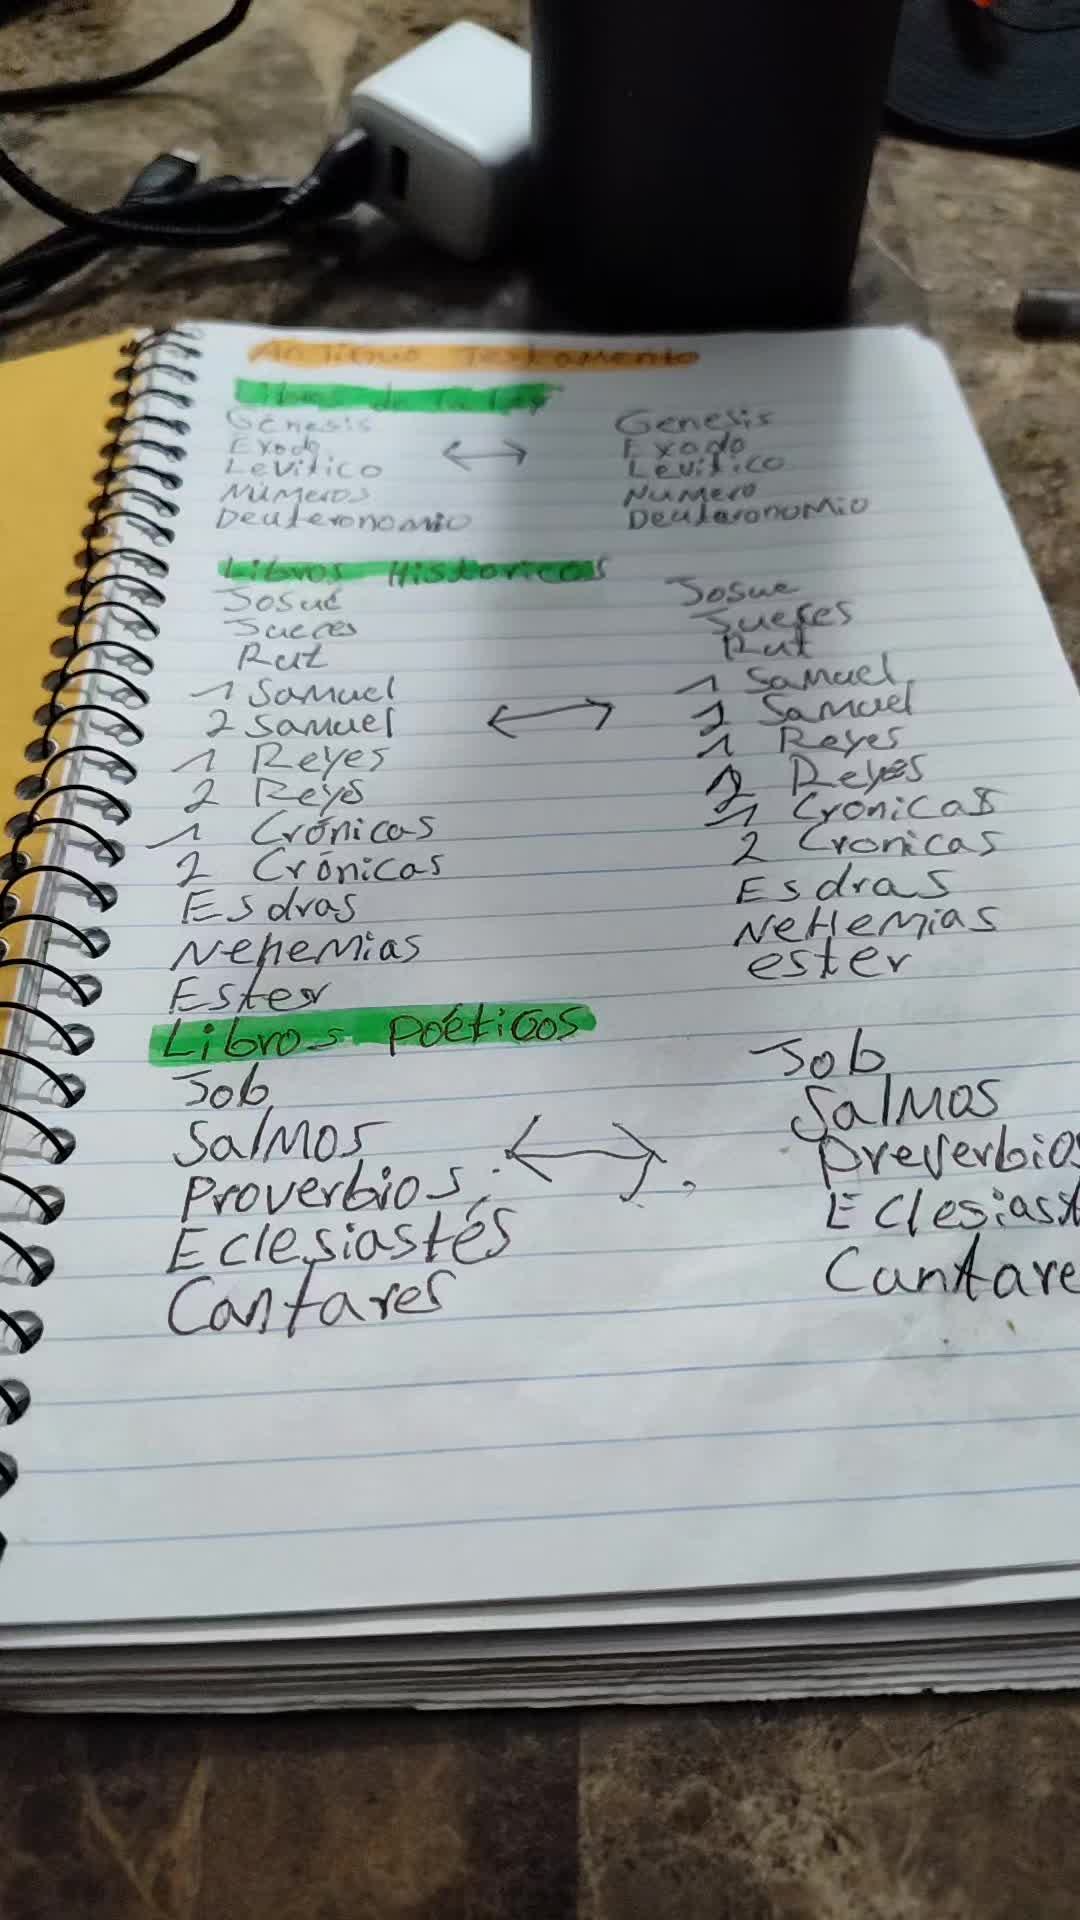 Antiguo Testamento
Libros de la Ley
Génesis
Exodo
Levitico
Números
Deuteronomio
Genesis
Exodo
Levitico
Numero
Deuteronomio
Libros Historicos
Josué
Jueces
Rut
1 Samuel
2 Samuel
1 Reyes
2 Reys
1 Crónicas
2 Crónicas
Esdras
Nehemias
Ester
Josue
Rut
1 Samuel
2 Samuel
1 Reyes
2 Reyes
1 Cronicas
2 Cronicas
Esdras
NeHemias
ester
Libros poéticos
Job
Salmos
Proverbios
Eclesiastés
Cantares
Job
Salmos
Preverbios
Eclesiast
Cantare